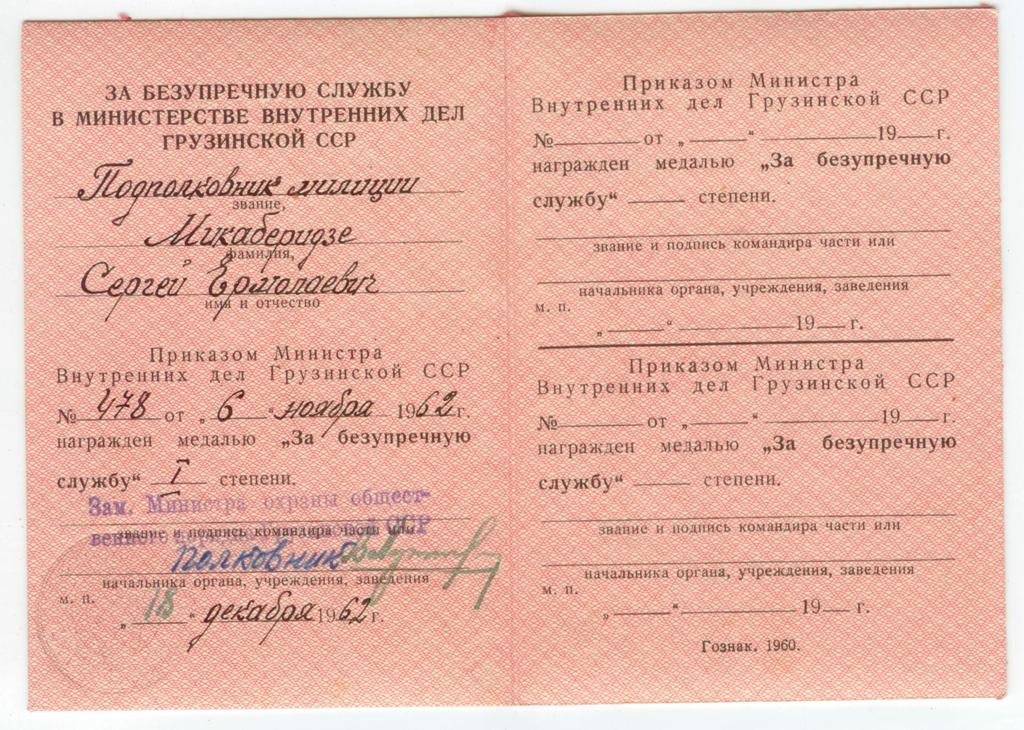 ЗА БЕЗУПРЕЧНУЮ СЛУЖБУ
В МИНИСТЕРСТВЕ ВНУТРЕННИХ ДЕЛ
ГРУЗИНСКОЙ ССР
Подполковник милиции
звание,
Микаберидзе
фамилия,
Сергей Ермолаевич
имя и отчество
Приказом Министра
Внутренних дел Грузинской ССР
№ 478 от „ 6 “ ноября 1962 г.
награжден медалью „За безупречную
службу“ I степени.
Зам. Министра охраны общест-
венного ССР
звание и подпись командира части или
полковник
начальника органа, учреждения, заведения
м. п.
„ 18 “ декабря 1962 г.
Приказом Министра
Внутренних дел Грузинской ССР
№ от „ “ 19 г.
награжден медалью „За безупречную
службу“ степени.
звание и подпись командира части или
начальника органа, учреждения, заведения
м. п.
„ “ 19 г.
Приказом Министра
Внутренних дел Грузинской ССР
№ от „ “ 19 г.
награжден медалью „За безупречную
службу“ степени.
звание и подпись командира части или
начальника органа, учреждения, заведения
м. п.
„ “ 19 г.
Гознак. 1960.